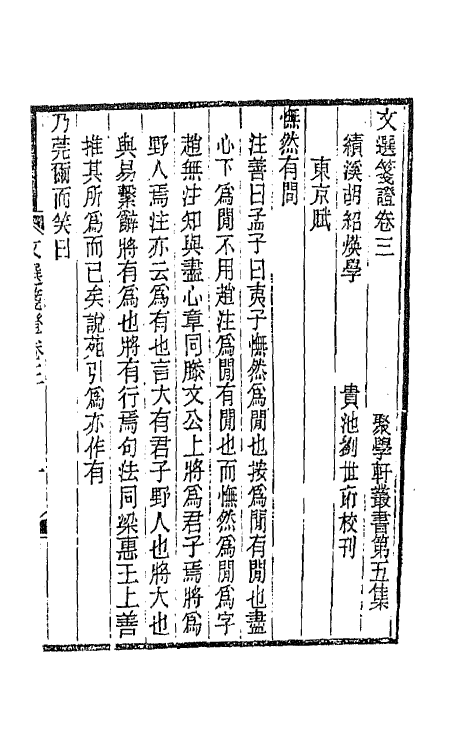 文選箋證卷三　聚學軒叢書第五集
績溪胡紹煐學　貴池劉世珩校刊
東京賦
憮然有間
注善曰孟子曰夷子憮然爲閒也按爲閒有閒也盡
心下爲閒不用趙注爲閒有閒也而憮然爲閒爲字
趙無注知與盡心章同滕文公上將爲君子焉將爲
野人焉注亦云爲有也言大有君子野人也將大也
與易繫辭將有爲也將有行焉句法同梁惠王上善
推其所爲而已矣說苑引爲亦作有
乃莞爾而笑曰
文選箋證卷三　一